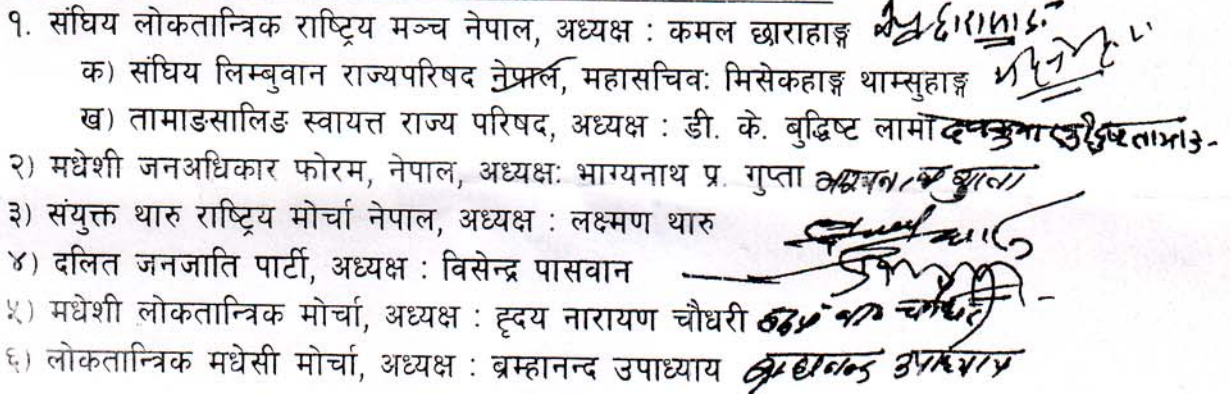 १. संघिय लोकतान्त्रिक राष्ट्रिय मञ्च नेपाल, अध्यक्ष : कमल छाराहाङ्ग
क) संघिय लिम्बुवान राज्यपरिषद नेपाल, महासचिवः मिसेकहाङ्ग थाम्सुहाङ्ग
ख) तामाङसालिङ स्वायत्त राज्य परिषद, अध्यक्ष : डी. के. बुद्धिष्ट लामा
२) मधेशी जनअधिकार फोरम, नेपाल, अध्यक्षः भाग्यनाथ प्र. गुप्ता
३) संयुक्त थारु राष्ट्रिय मोर्चा नेपाल, अध्यक्ष : लक्ष्मण थारु
४) दलित जनजाति पार्टी, अध्यक्ष : विसेन्द्र पासवान
५) मधेशी लोकतान्त्रिक मोर्चा, अध्यक्ष : हृदय नारायण चौधरी
६) लोकतान्त्रिक मधेसी मोर्चा, अध्यक्ष : ब्रम्हानन्द उपाध्याय